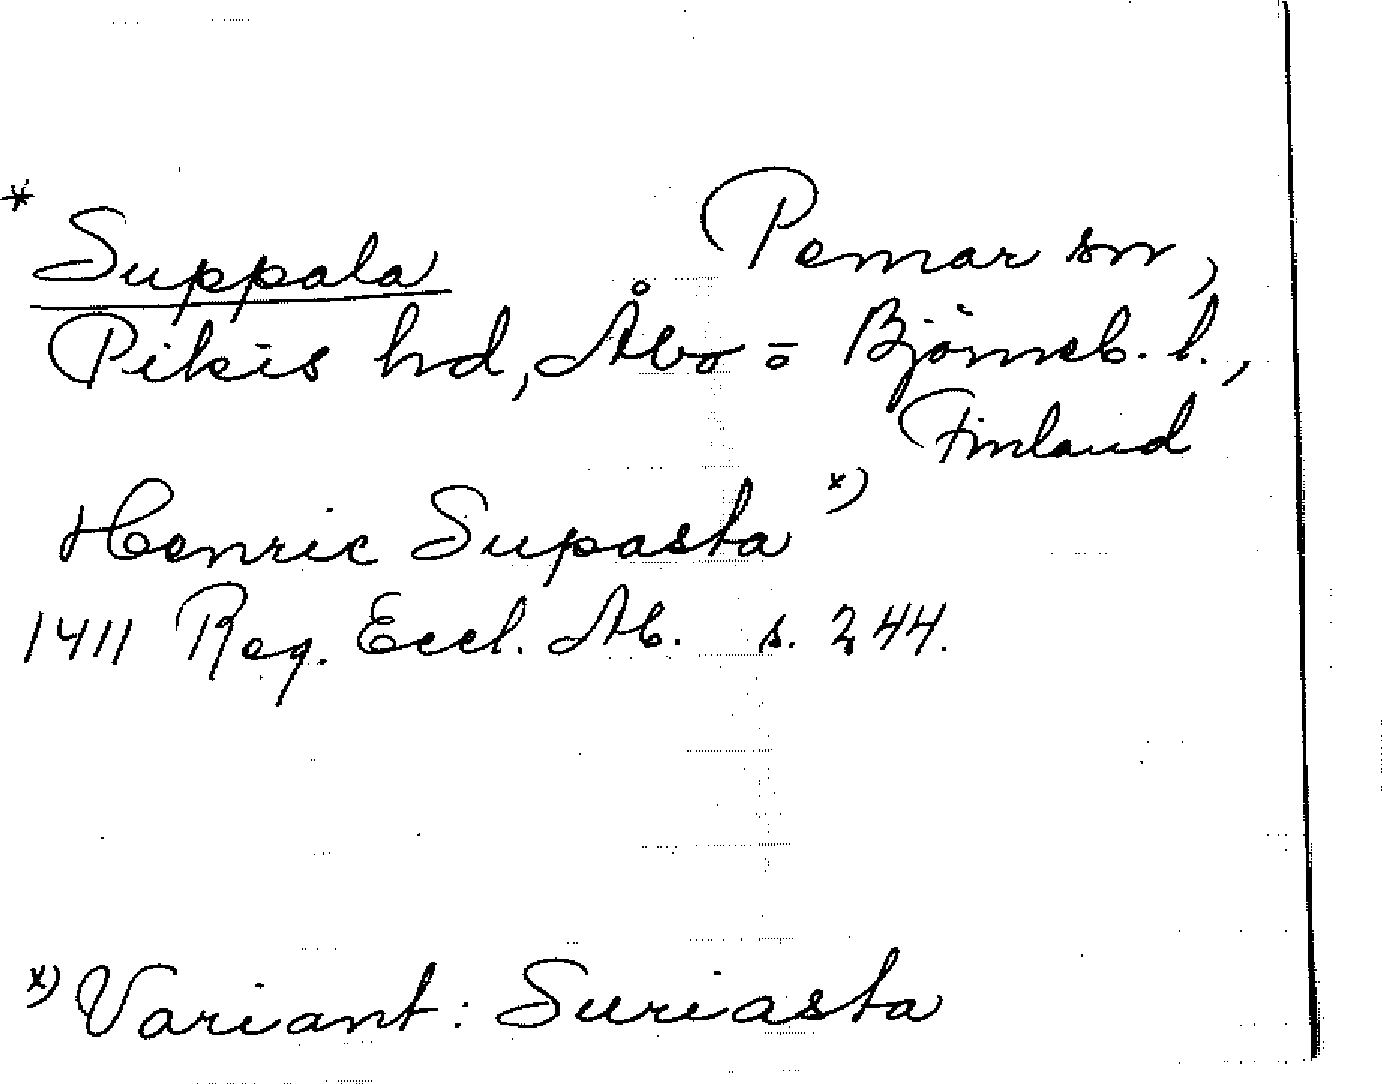 * Suppala Pemar sn,
Pikis hd, Åbo = Björneb. l.,
Finland
Henric Supasta x)
1411 Reg. Eccl. Ab. s. 244.
x) Variant: Suriasta